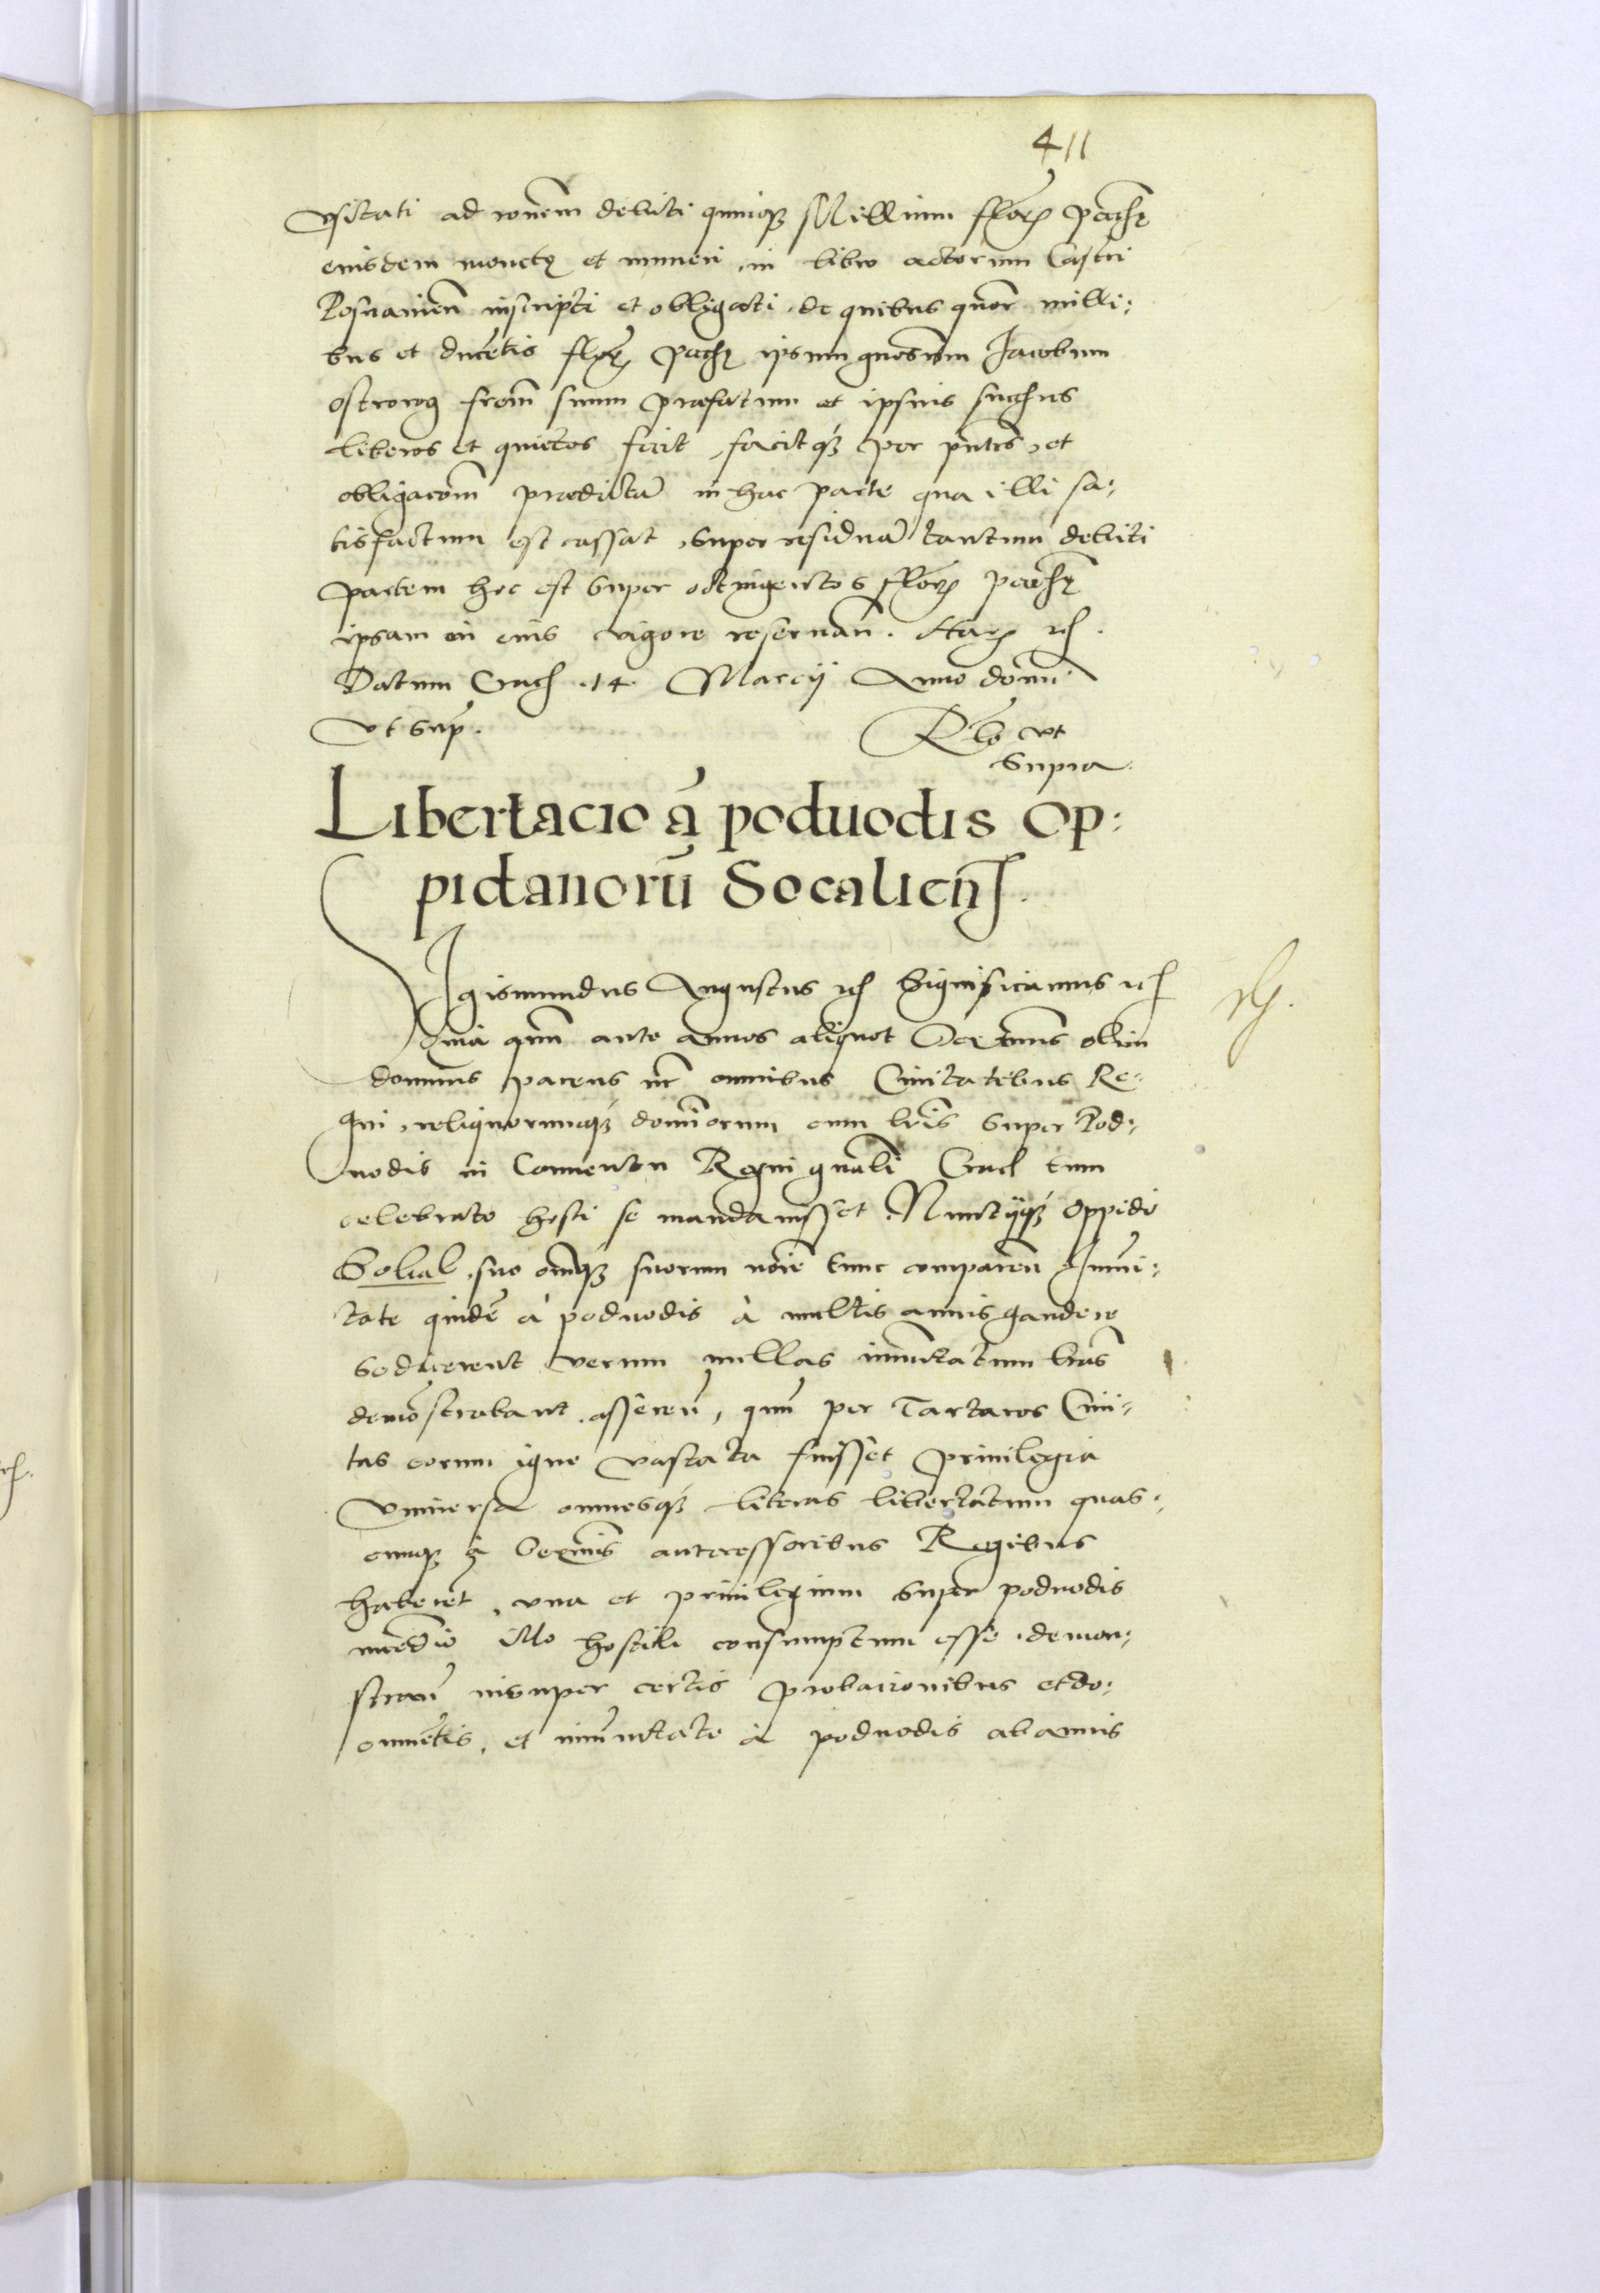 411
Vsitati ad ronem debiti quinqꝫ Millium floreñ pecuñ
eiusdem monetę et numeri in libro actorum Castri
Posnanieñ inscripti et obligati, de quibus quor milli:
bus et ducetis floreñ pecuñ ipsum gnosum Iacobum
Ostrorog frem suum praefatum et ipsius succhus
liberos et quietos fecit, facitqꝫ per pntes, et
obligacom predicta in hac parte qua illi sa:
tisfactum est cassat, super residua tantum debiti
partem hoc est super octingentos floreñ pecuñ
ipsam in eius vigore reseruan. Harum etc.
Datum Cracoviae 14 Marcij Anno domi
Vt supra.
Relo vt
supra.
Libertacio a poduodis Op:
pidanorū Socalien.
Sigismundus Augustus etc Significamus etc
Quia qum ante annos aliquot Serenmus olim
dominus parens nr omnibus Ciuitatibus Re:
gni, reliquorumqꝫ dominorum cum lris super Pod:
uodis in Conuentu Regni gnali Crac tum
celebrato hosti se mandauisset. Nunctijqꝫ Oppidi
Sokal, suo omqꝫ suorum noie tunc comparen Imuni:
tate quide à poduodis à multis annis gaudere
se dicerent verum nullas imunitatum lras
demostrabant, asseren, qum per Tartaros Ciui:
tas eorum igne vastata fuisset Priuilegia
Vniuersa omnesqꝫ literas libertatum quas:
cunqꝫ a Serenmis antecessoribus Regibus
haberet, vna et priuilegium super poduodis
incedio illo hostili consumptum esse, demon:
stran insuper certis probacionibus et do:
cumetis, et imunitate à poduodis ab annis